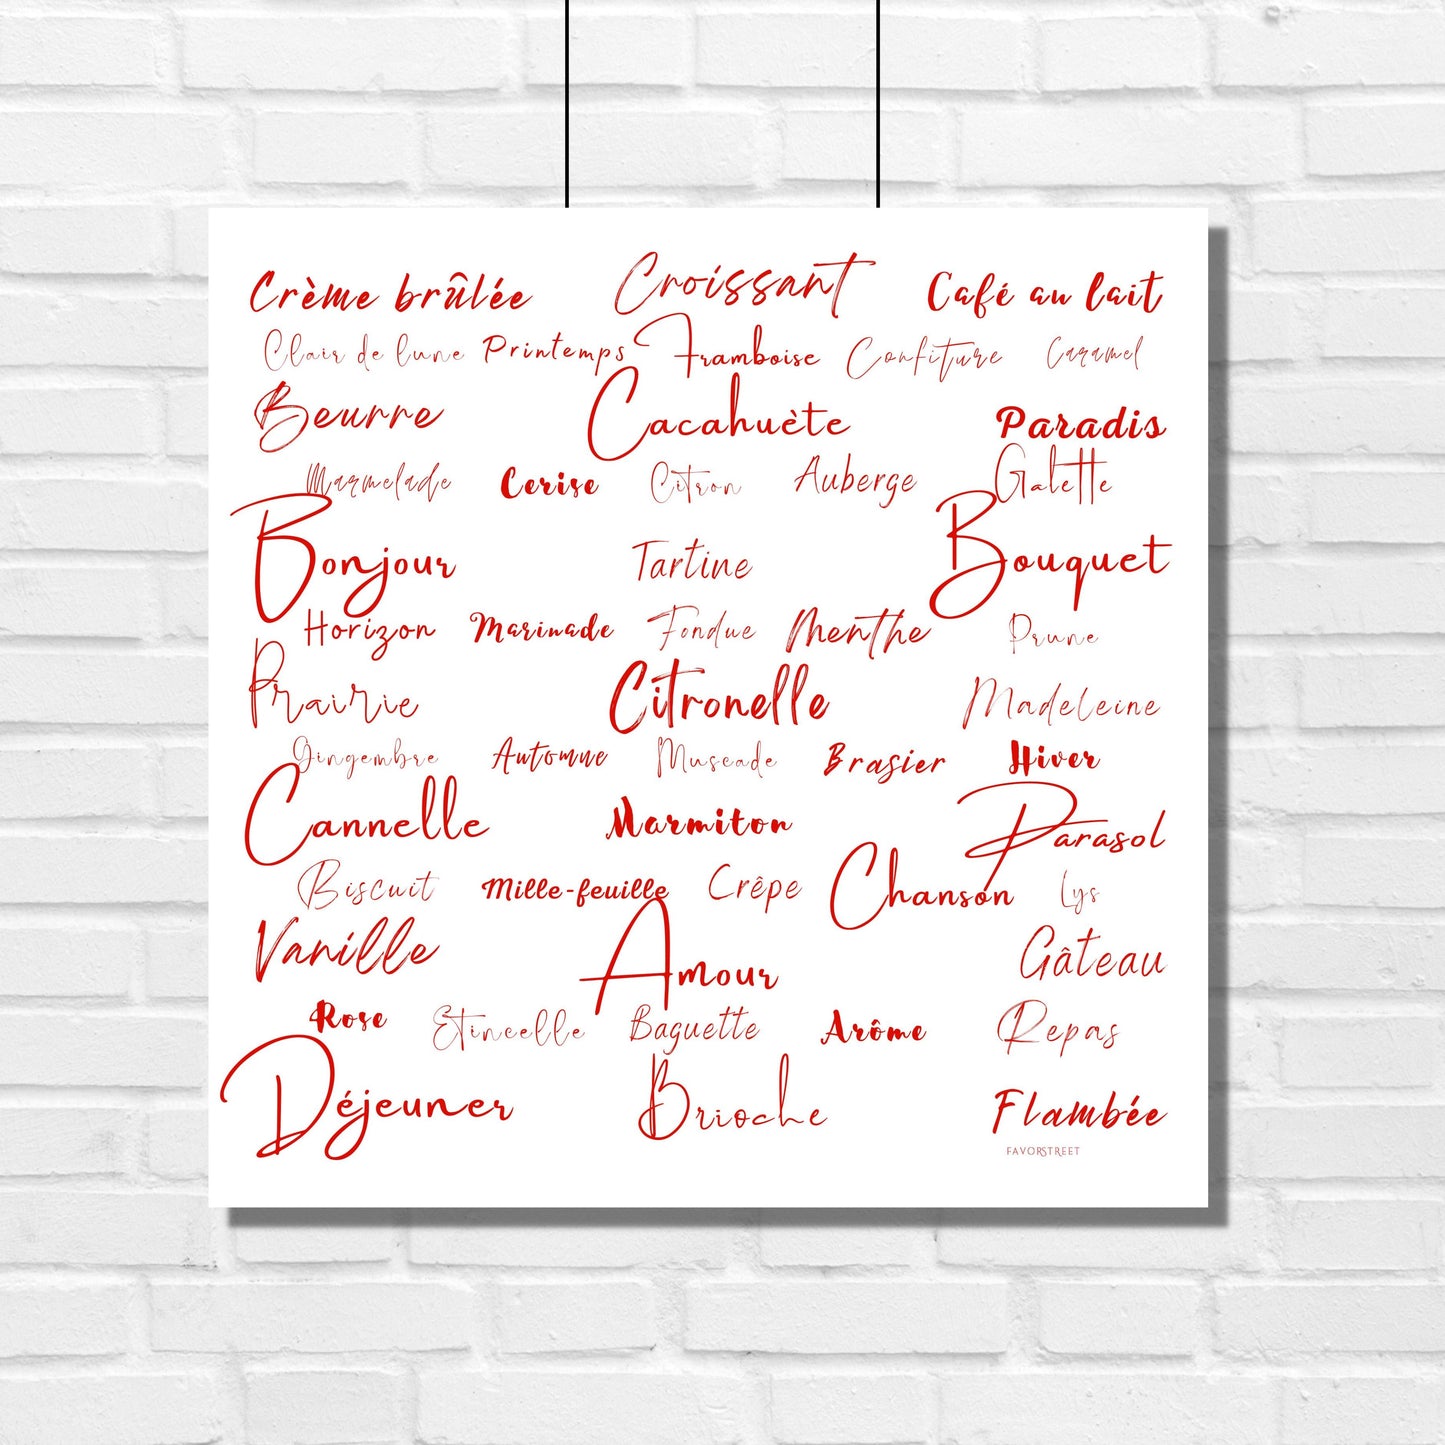 Crème brûlée Croissant Café au lait
Clair de lune Printemps Framboise Confiture Caramel
Beurre Cacahuète Paradis
Marmelade Cerise Citron Auberge Galette
Bonjour Tartine Bouquet
Horizon Marinade Fondue Menthe Prune
Prairie Citronelle Madeleine
Gingembre Automne Muscade Brasier Hiver
Cannelle Marmiton Parasol
Biscuit Mille-feuille Crêpe Chanson Lys
Vanille Amour Gâteau
Rose Etincelle Baguette Arôme Repas
Déjeuner Brioche Flambée
FAVORSTREET